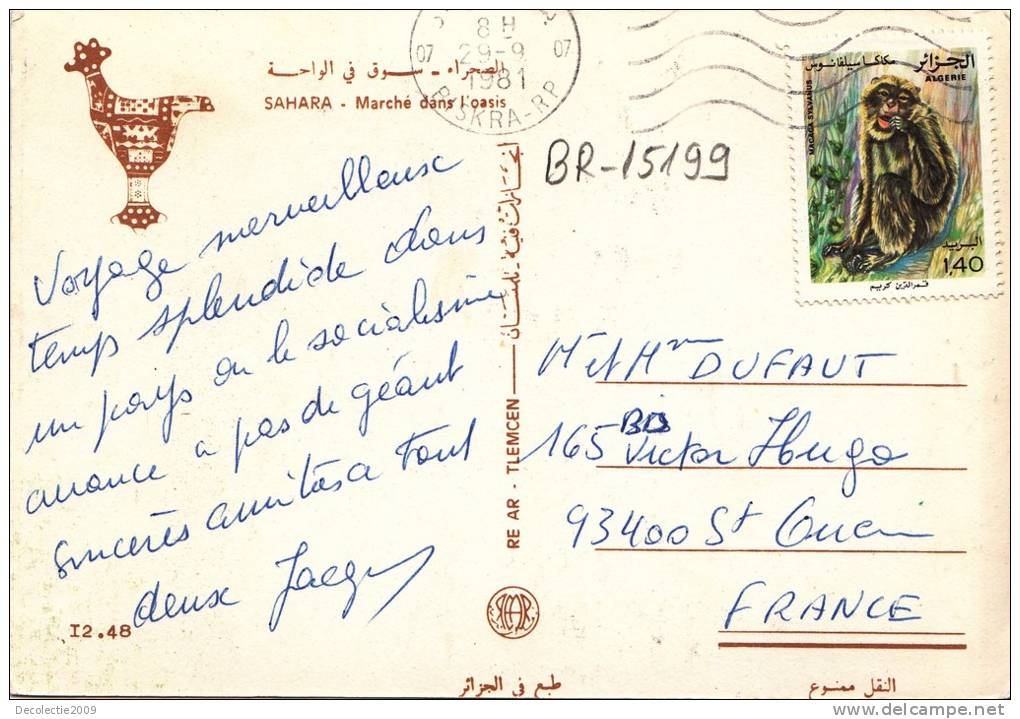 8H
07 29-9 07
1981
BISKRA-RP
الصحراء - سوق في الواحة
SAHARA - Marché dans l'oasis
الجزائر
ALGERIE
مكاكا سيلفانوس
MACACA SYLVANUS
البريد
1,40
قمر الدين كريم
BR-15199
Voyage merveilleux
temps splendide dans
un pays ou le socialisme
avance a pas de géant
Sincères amitiés a tout
deux Jacq
RE AR - TLEMCEN
M et Mme DUFAUT
165 BIS Victor Hugo
93400 St Ouen
FRANCE
12.48
طبع في الجزائر
النقل ممنوع
Decolectie2009
www.delcampe.net